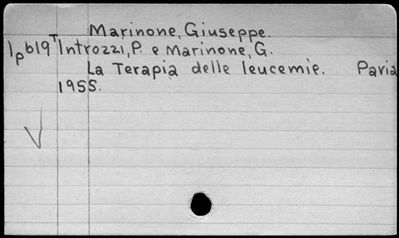 Marinone, Giuseppe.
1pb19T Introzzi, P. e Marinone, G.
La Terapia delle leucemie. Pavia
1955.